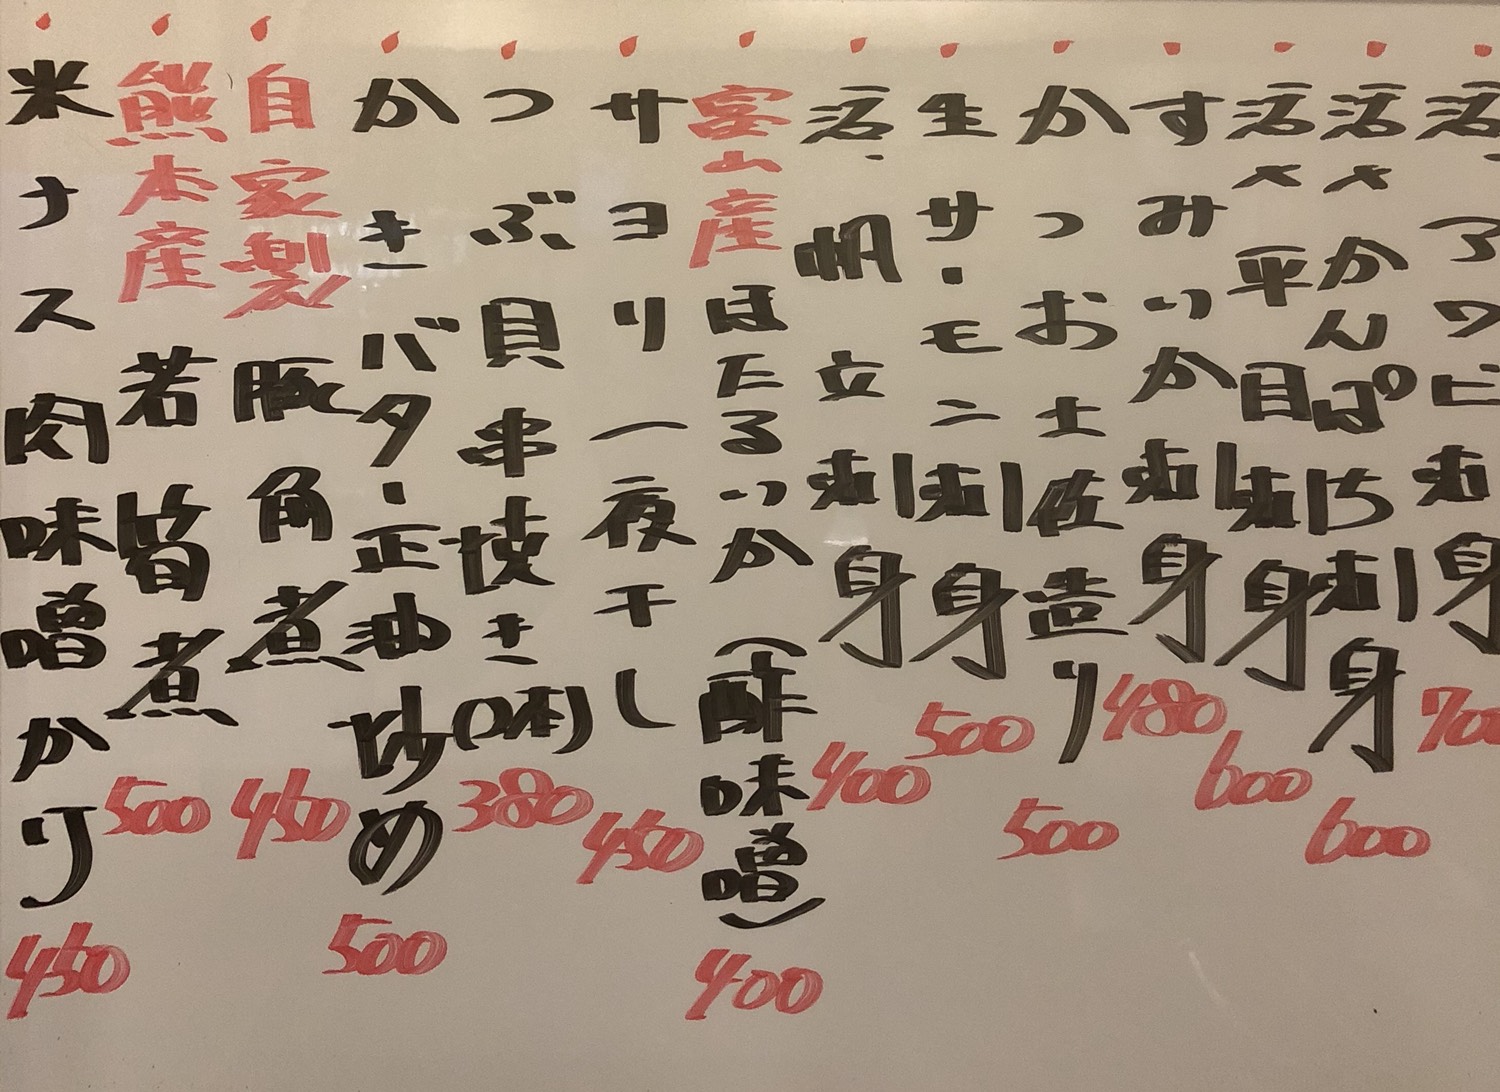 活アワビ刺身 700
活〆かんぱち刺身 600
活〆平目刺身 600
すみいか刺身 480
かつお土佐造り 500
生サーモン刺身 500
活帆立刺身 400
富山産ほたるいか(酢味噌) 400
サヨリ一夜干し 450
つぶ貝串焼き 380
かきバター正油炒め 500
自家製豚角煮 450
熊本産若筍煮 500
米ナス肉味噌かけ 450